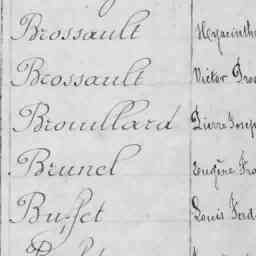 Brossault Hyacinthe
Brossault Victor
Brouillard Pierre Joseph
Brunel Eugène
Buffet Louis Ferd